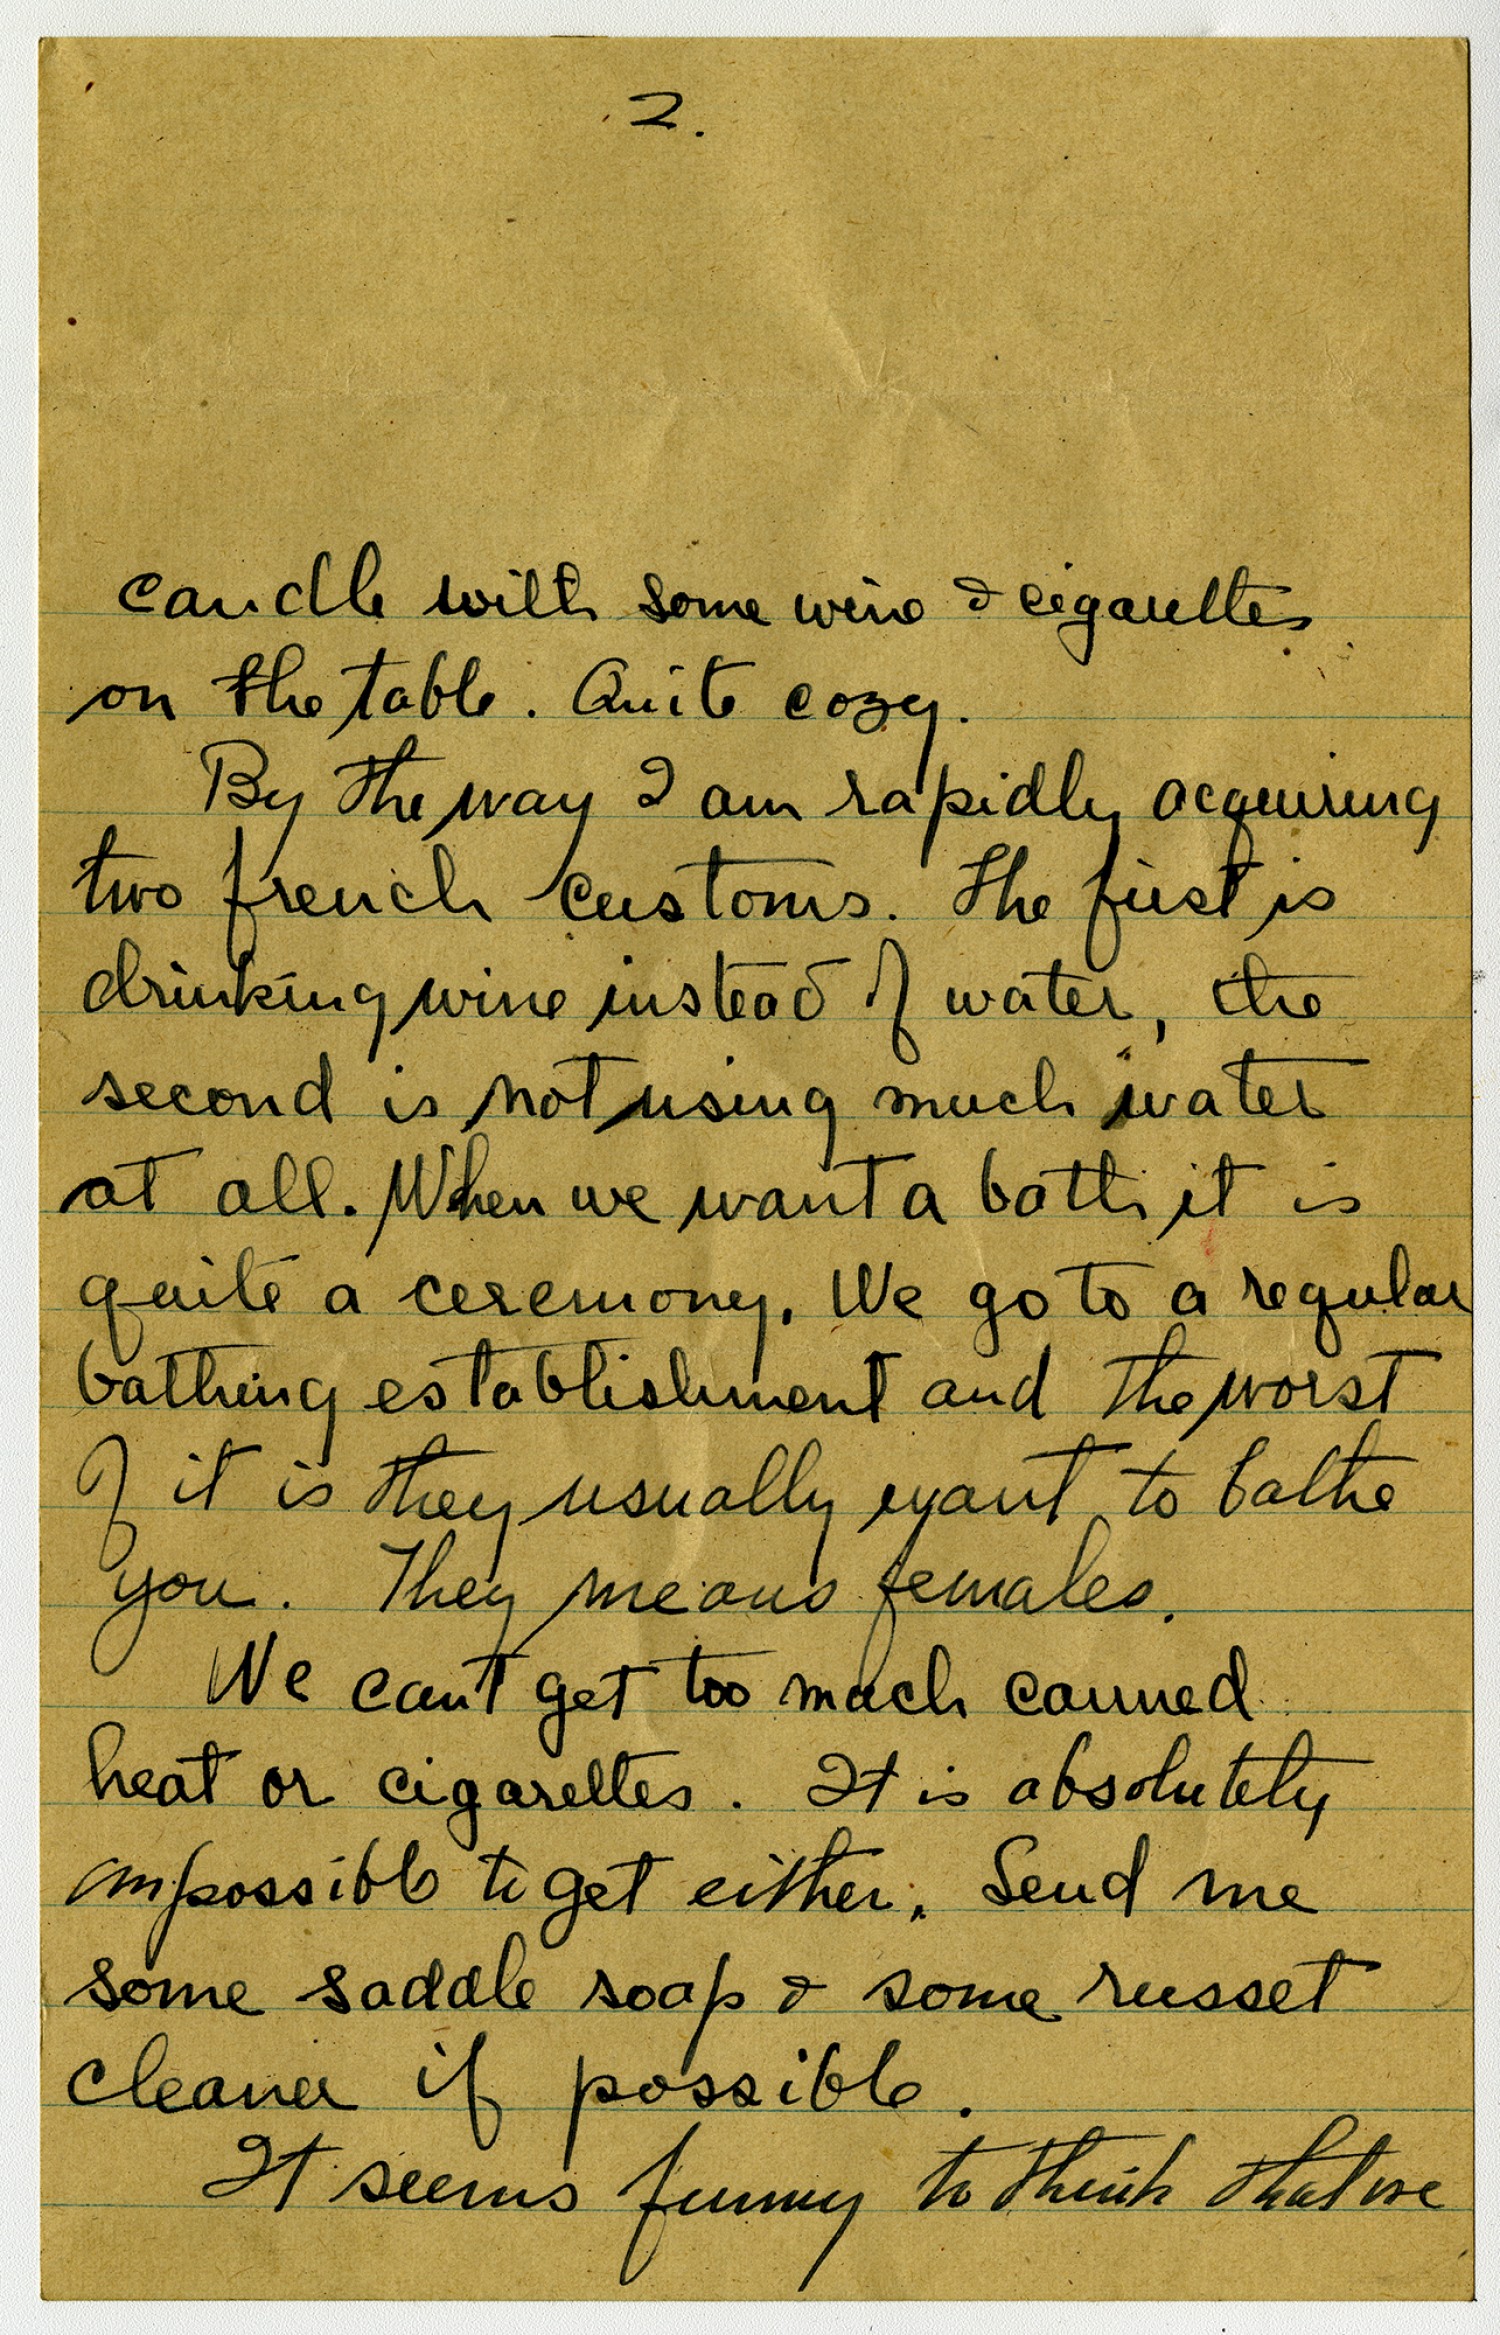 2.
candle with some wine & cigarettes
on the table. Quite cozy.
By the way I am rapidly acquiring
two french customs. The first is
drinking wine instead of water, the
second is not using much water
at all. When we want a bath it is
quite a ceremony. We go to a regular
bathing establishment and the worst
of it is they usually want to bathe
you. They means females.
We can't get too much canned
heat or cigarettes. It is absolutely
impossible to get either. Send me
some saddle soap & some russet
cleaner if possible.
It seems funny to think that we